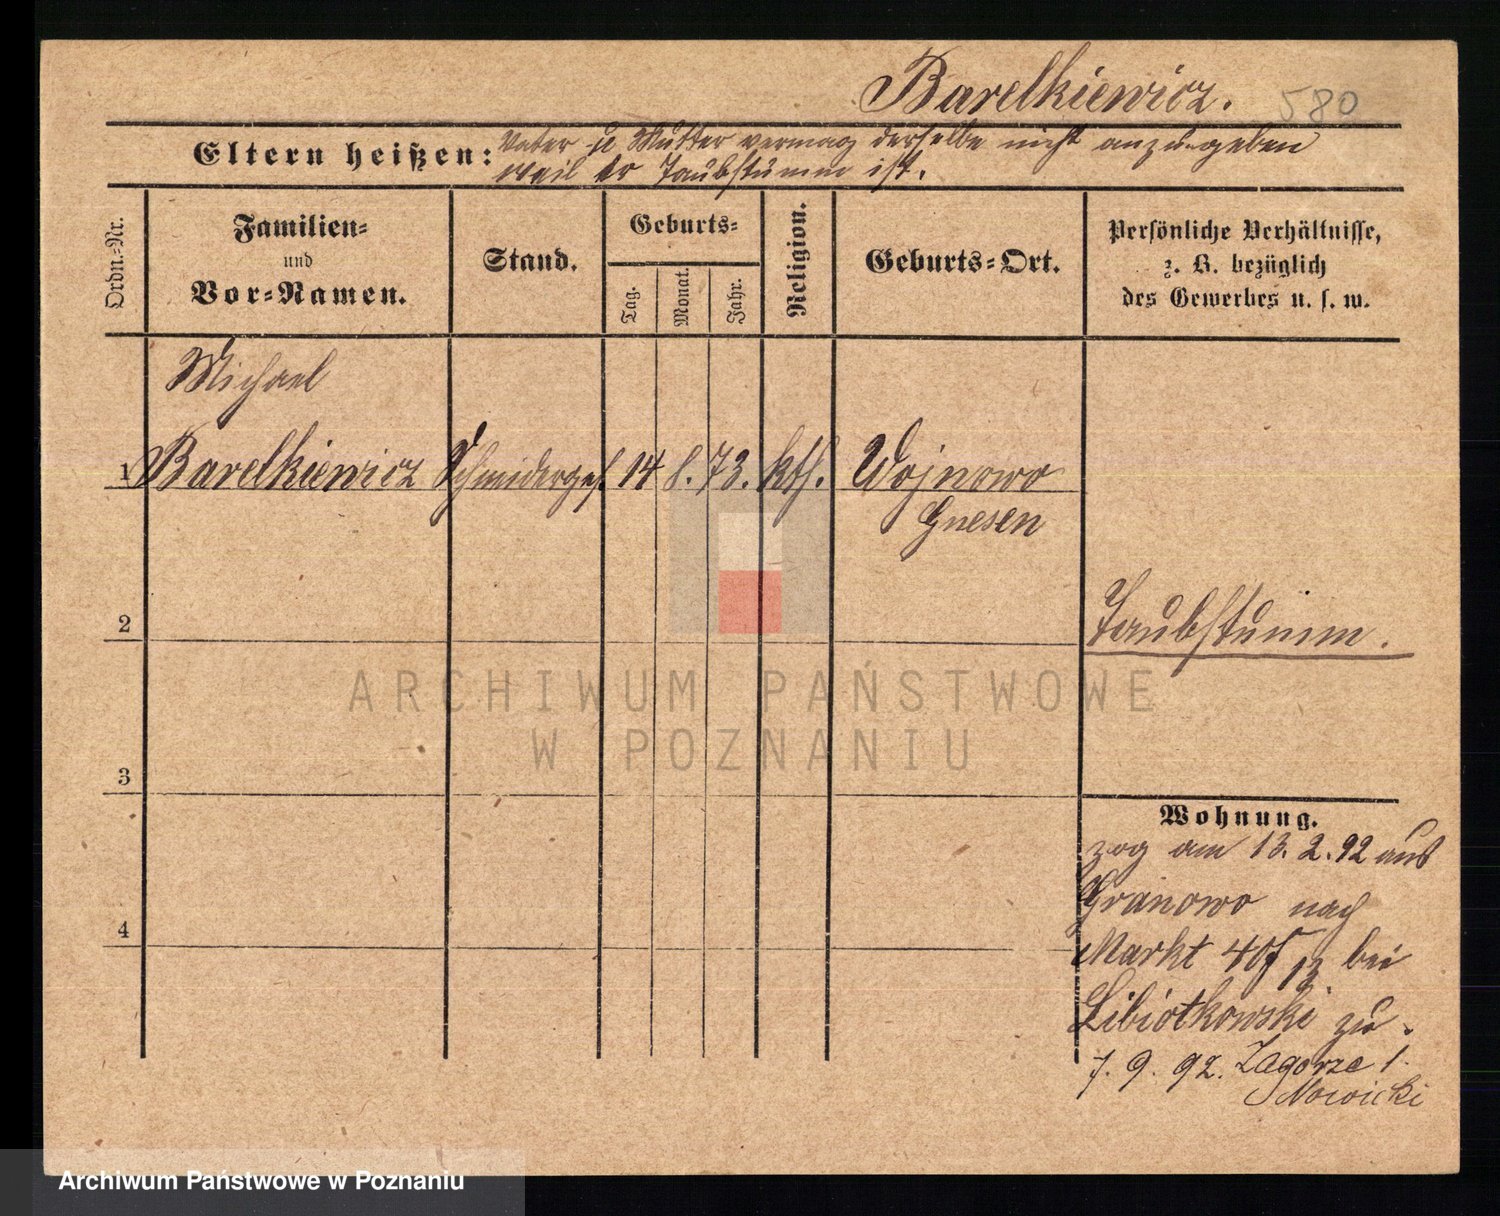 Barelkiewicz. 580
Eltern heißen: Vater u Mutter vermag derselbe nicht anzugeben
weil er Taubstumm ist.
Ordn.-Nr.
Familien-
und
Vor-Namen.
Stand.
Geburts-
Tag.
Monat.
Jahr.
Religion.
Geburts-Ort.
Persönliche Verhältnisse,
z. B. bezüglich
des Gewerbes u. s. w.
Michael
1 Barelkiewicz Schneiderges. 14 8. 73. kth. Wojnowo
Gnesen
2
Taubstumm.
ARCHIWUM PAŃSTWOWE
W POZNANIU
3
Wohnung.
zog am 13. 2. 92 aus
Granowo nach
4
Markt bei
zu.
7. 9. 92. Zagorze 1.
Nowicki
Archiwum Państwowe w Poznaniu